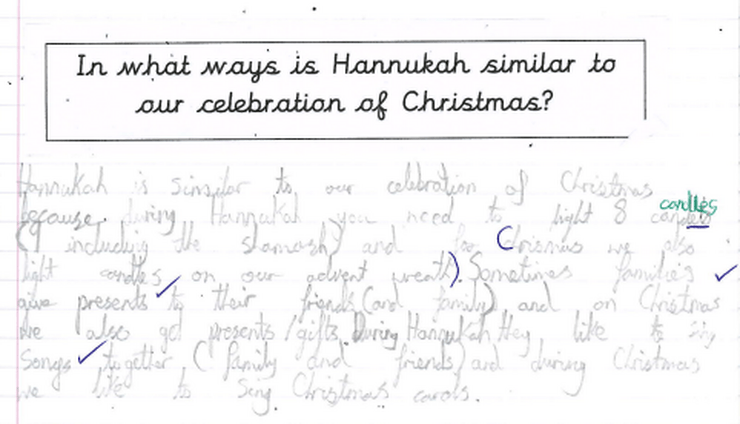 In what ways is Hannukah similar to
our celebration of Christmas?
Hannukah is similar to our celebration of Christmas
candles
because during Hannukah you need to light 8 candels
(9 including the shamash) and for Chrismas we also
light candles on our advent wreath). Sometimes families
give presents to their friends (and family) and on Christmas
we also get presents/gifts. During Hannukah they like to sing
songs together (family and friends) and during Christmas
we like to sing Christmas carols.